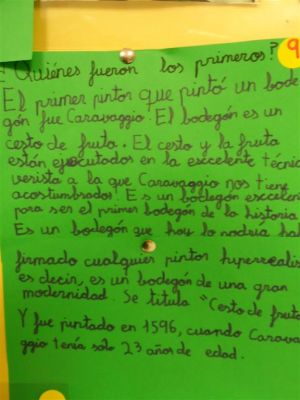 ¿Quiénes fueron los primeros? 9
El primer pintor que pintó un bode
gón fue Caravaggio. El bodegón es un
cesto de fruta. El cesto y la fruta
están ejecutados en la excelente técnic
verista a la que Caravaggio nos tiene
acostumbrados. E s un bodegón escelen
para ser el primer bodegón de la historia
Es un bodegón que hoy lo podria hab
firmado cualquier pintor hiperrealis
es decir, es un bodegón de una gran
modernidad. Se titula "Cesto de frute
Y fue pintado en 1596, cuando Carava
ggio tenía solo 23 años de edad.